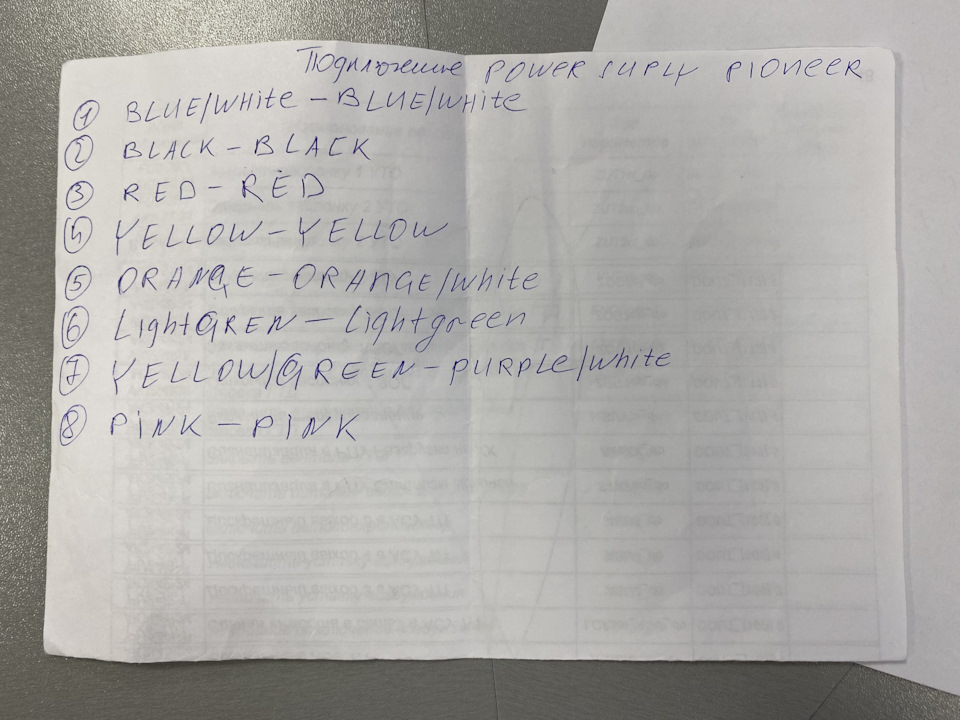 Подключение POWER SUPLY PIONEER
① BLUE/WHite – BLUE/WHite
② BLACK – BLACK
③ RED – RED
④ YELLOW – YELLOW
⑤ ORANGE – ORANGE/white
⑥ LightGREN – Lightgreen
⑦ YELLOW/GREEN – PURPLE/white
⑧ PiNK – PiNK